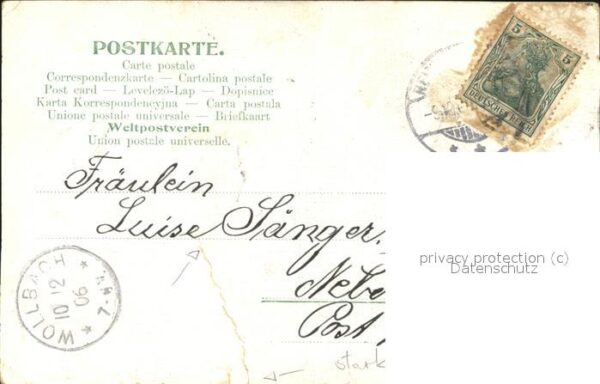 POSTKARTE.
Carte postale
Correspondenzkarte — Cartolina postale
Post card — Levelező-Lap — Dopisnice
Karta Korrespondencyjna — Carta postala
Unione postale universale — Briefkaart
Weltpostverein
Union postale universelle.
5 5
DEUTSCHES REICH
Fräulein
Luise Sänger.
privacy protection (c)
Datenschutz
WOLLBACH
10 12
06
7-8 V.
Nebe
Post
stark